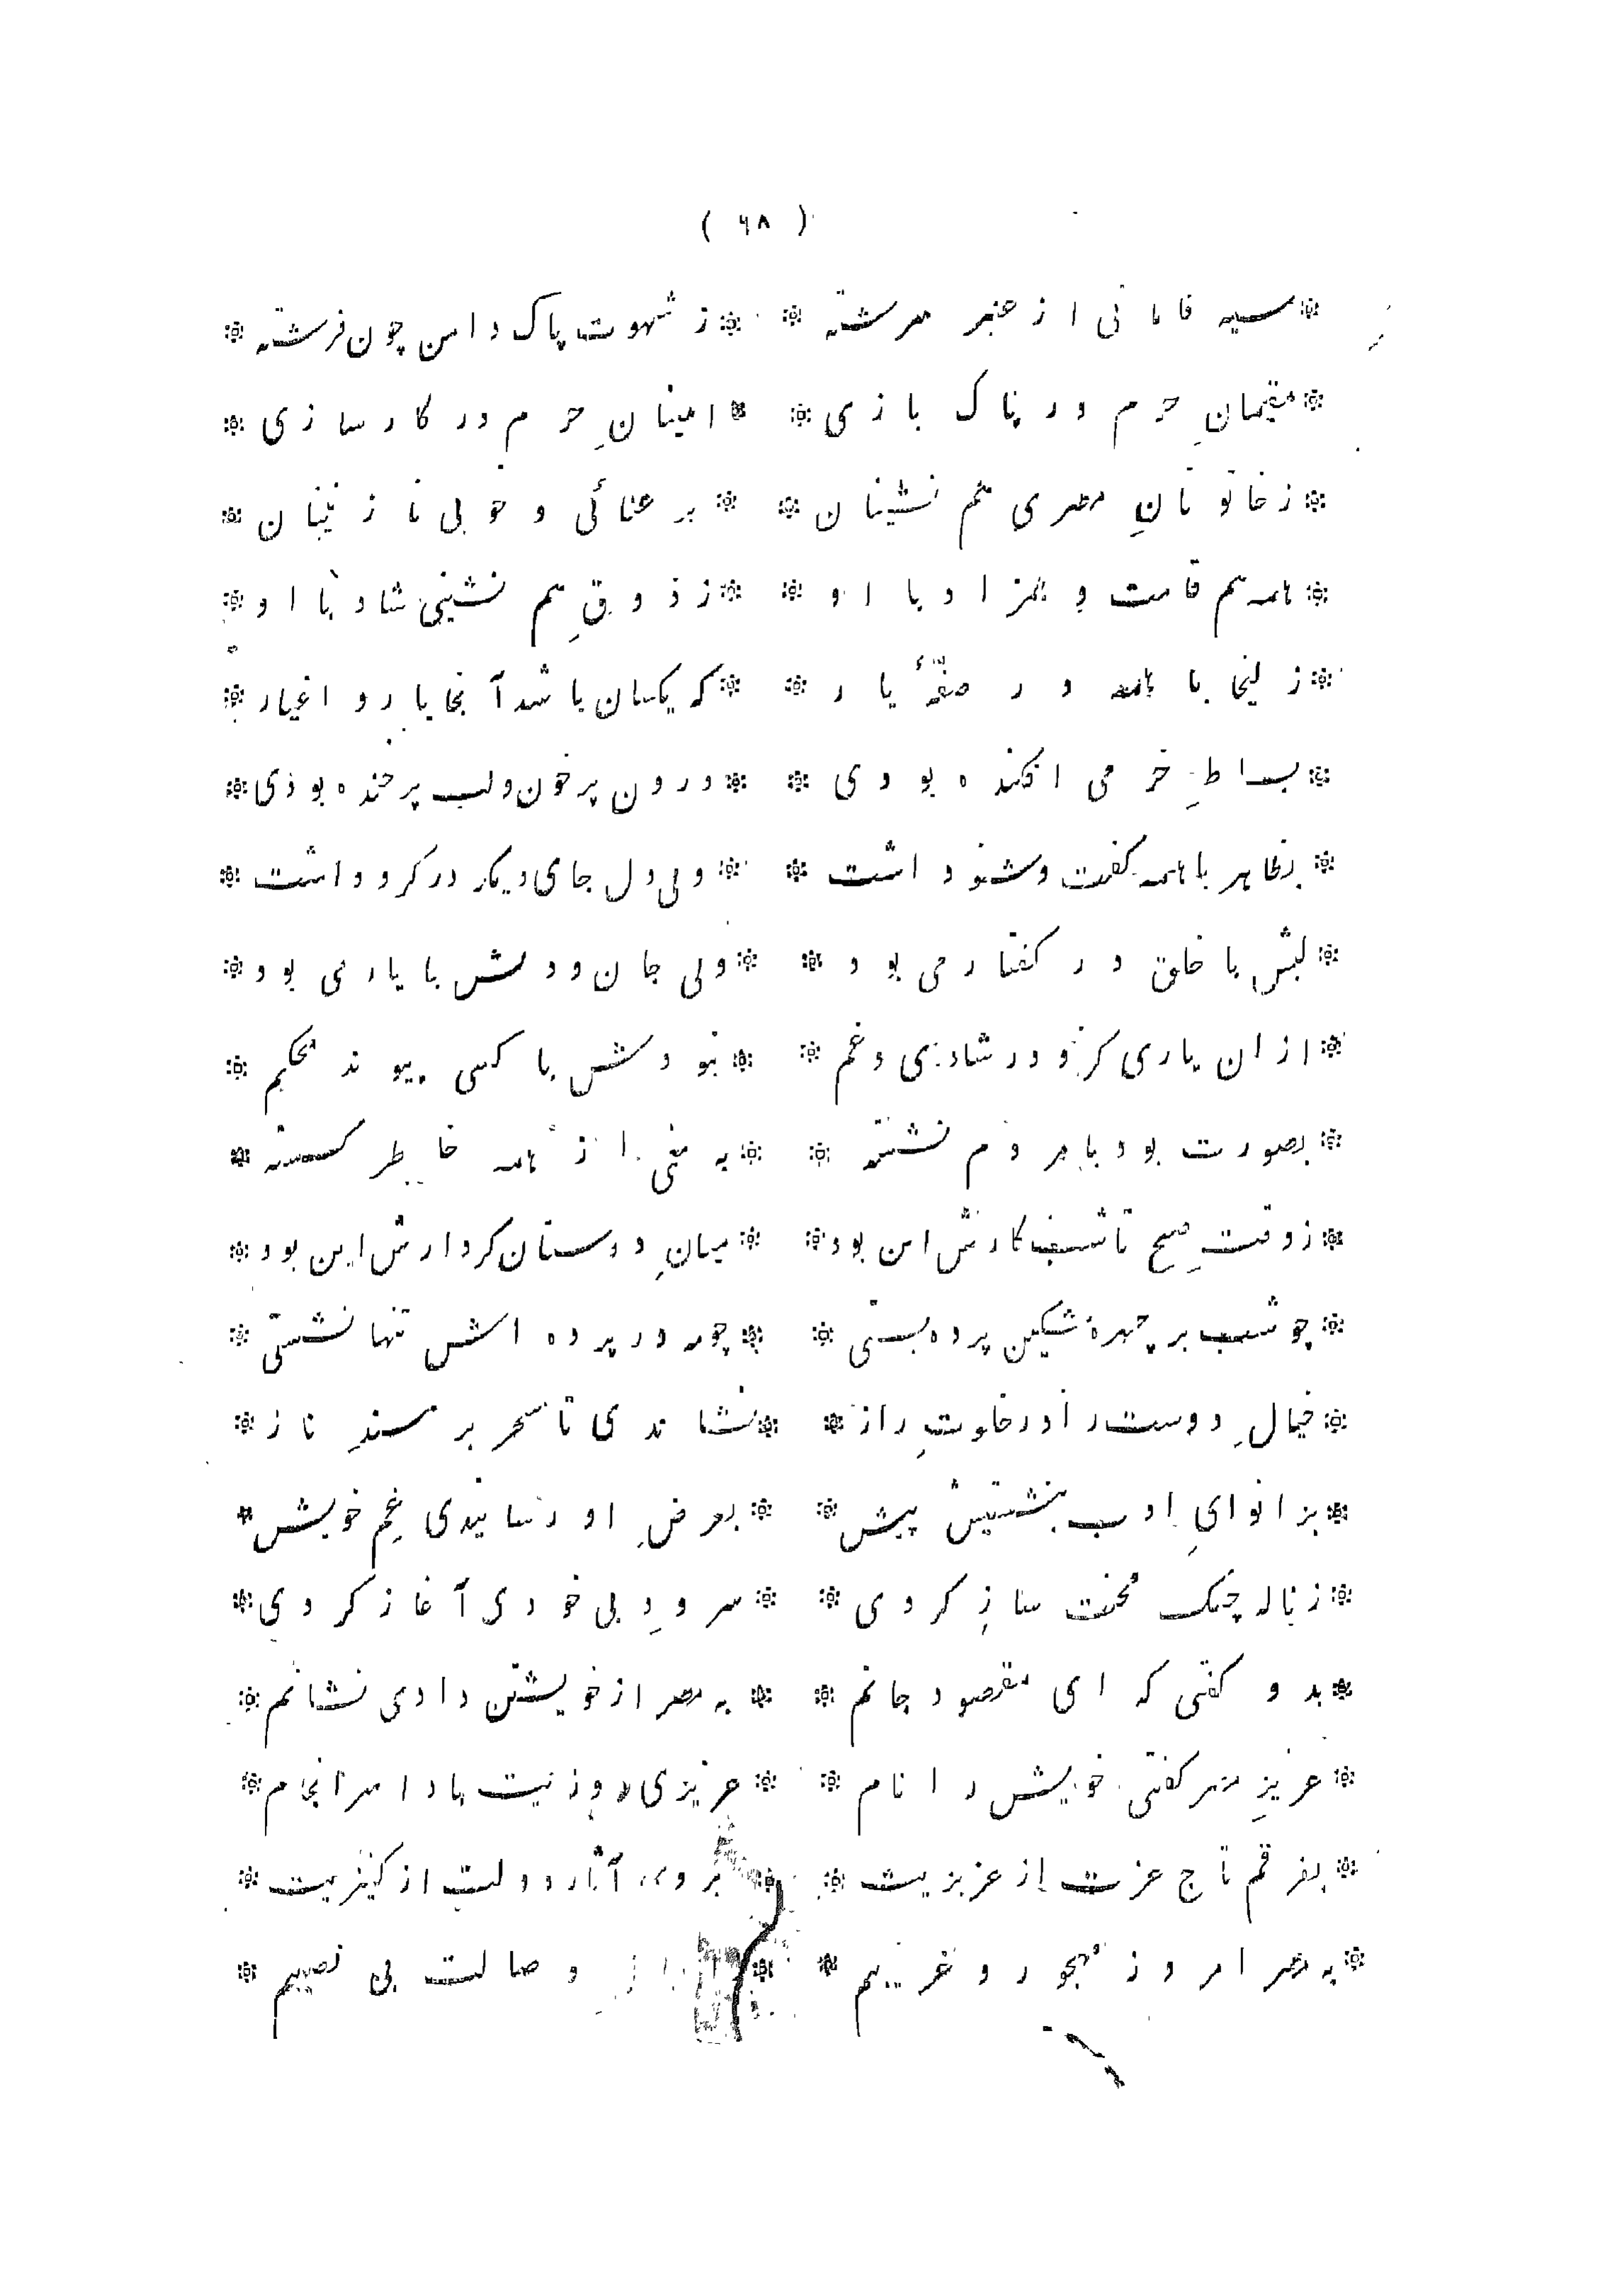 ( ۶۸ )
* سیه فامانی از عنبر سرشته * * ز شهوت پاک دامن چون فرشته *
* مقیمانِ حرم در پاک بازی * * امینانِ حرم در کار سازی *
* ز خاتونانِ مصری هم نشینان * * برعنائی و خوبی نازنینان *
* همه هم قامت و همزاد با او * * ز ذوقِ هم نشینی شاد با او *
* زلیخا با همه در صفّهٔ یار * * که یکسان باشد آنجا یار و اغیار *
* بساطِ خرمی افکنده بودی * * درون پرخون و لب پرخنده بودی *
* بظاهر با همه گفت و شنو داشت * * ولی دل جای دیگر در گرو داشت *
* لبش با خلق در گفتار می بود * * ولی جان و دلش با یار می بود *
* از ان یاری کزو در شادی و غم * * نبودش با کسی پیوند محکم *
* بصورت بود با مردم نشسته * * به معنی از همه خاطر گسسته *
* ز وقتِ صبح تا شب کارش این بود * * میانِ دوستان کردارش این بود *
* چو شب بر چهرهٔ مشکین پرده بستی * * چو مه در پرده اش تنها نشستی *
* خیالِ دوست را در خلوتِ راز * * نشاندی تا سحر بر مسندِ ناز *
* بزانوایِ ادب بنشستیش پیش * * بعرضِ او رسانیدی غمِ خویش *
* ز ناله چنگ محنت ساز کردی * * سرودِ بی خودی آغاز کردی *
* بدو گفتی که ای مقصود جانم * * به مصر از خویشتن دادی نشانم *
* عزیزِ مصر گفتی خویش را نام * * عزیزی روزیت بادا سرانجام *
* بفرقم تاج عزت از عزیزیت * * برویم آثار دولت از کنیزیت *
* به مصر امروز مهجور و غریبم * * وصالت بی نصیبم *